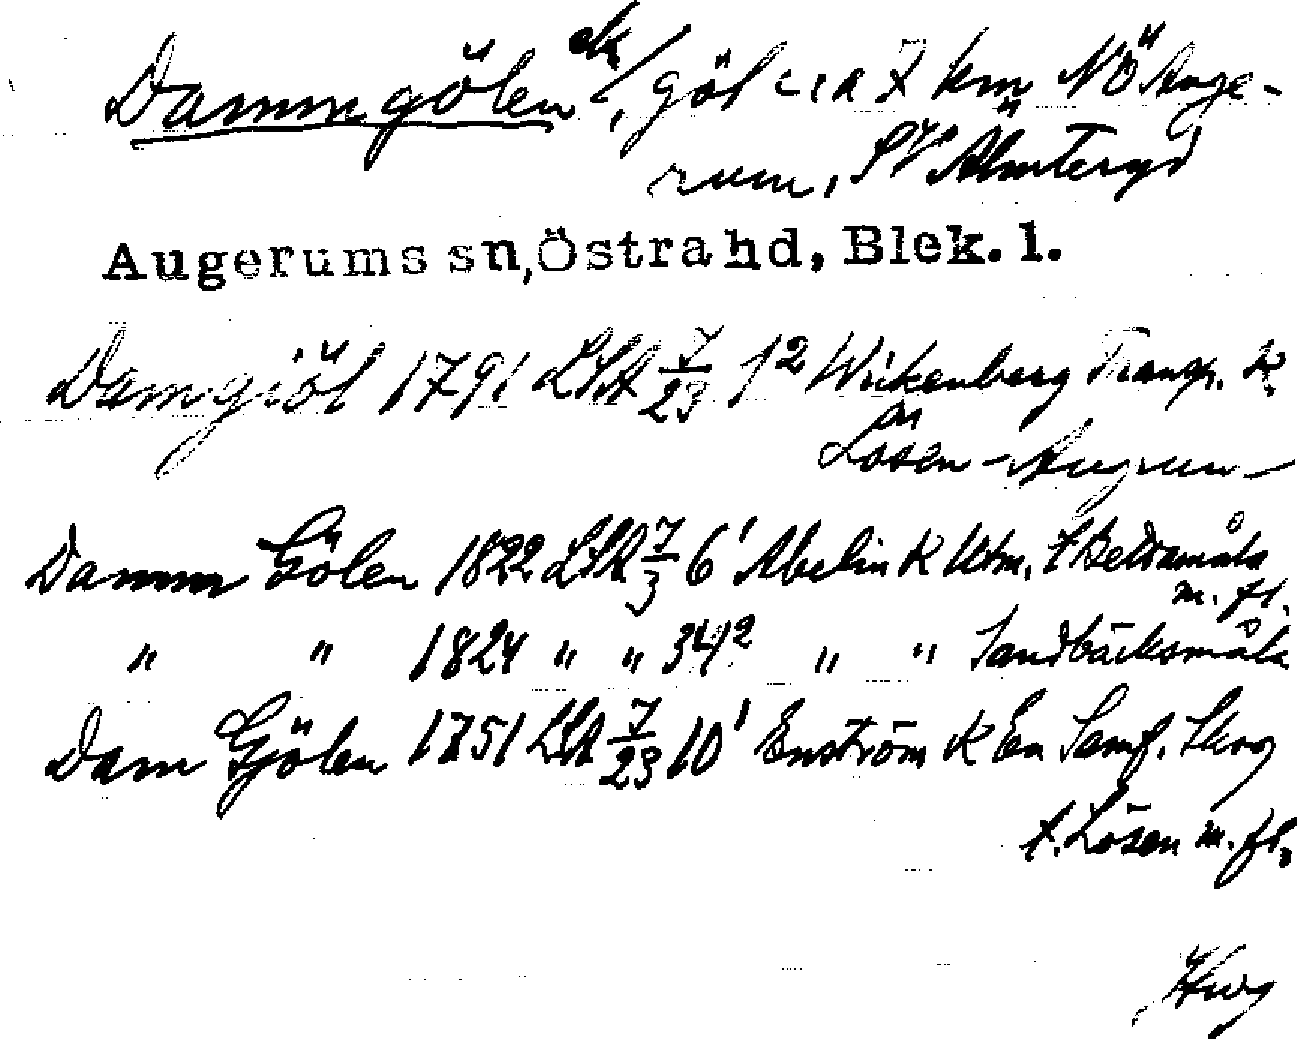 Dammgölen ek, göl c:a 7 km NÖ Auge-
rum, SV Älmteryd
Augerums sn, Östra hd, Blek. l.
Damgiöl 1791 LSA 7/23 1² Wickenberg Transp. k
Lösen - Augrum -
Damm Gölen 1822 LSA 7/3 6' Abelin k Utm. t Beltsmåla
m. fl.
" " 1824 " " 34² " " Sandbäcksmåla
Dam Gjölen 1751 LSA 7/23 10' Enström k En Samf. Skog
t. Lösen m. fl.